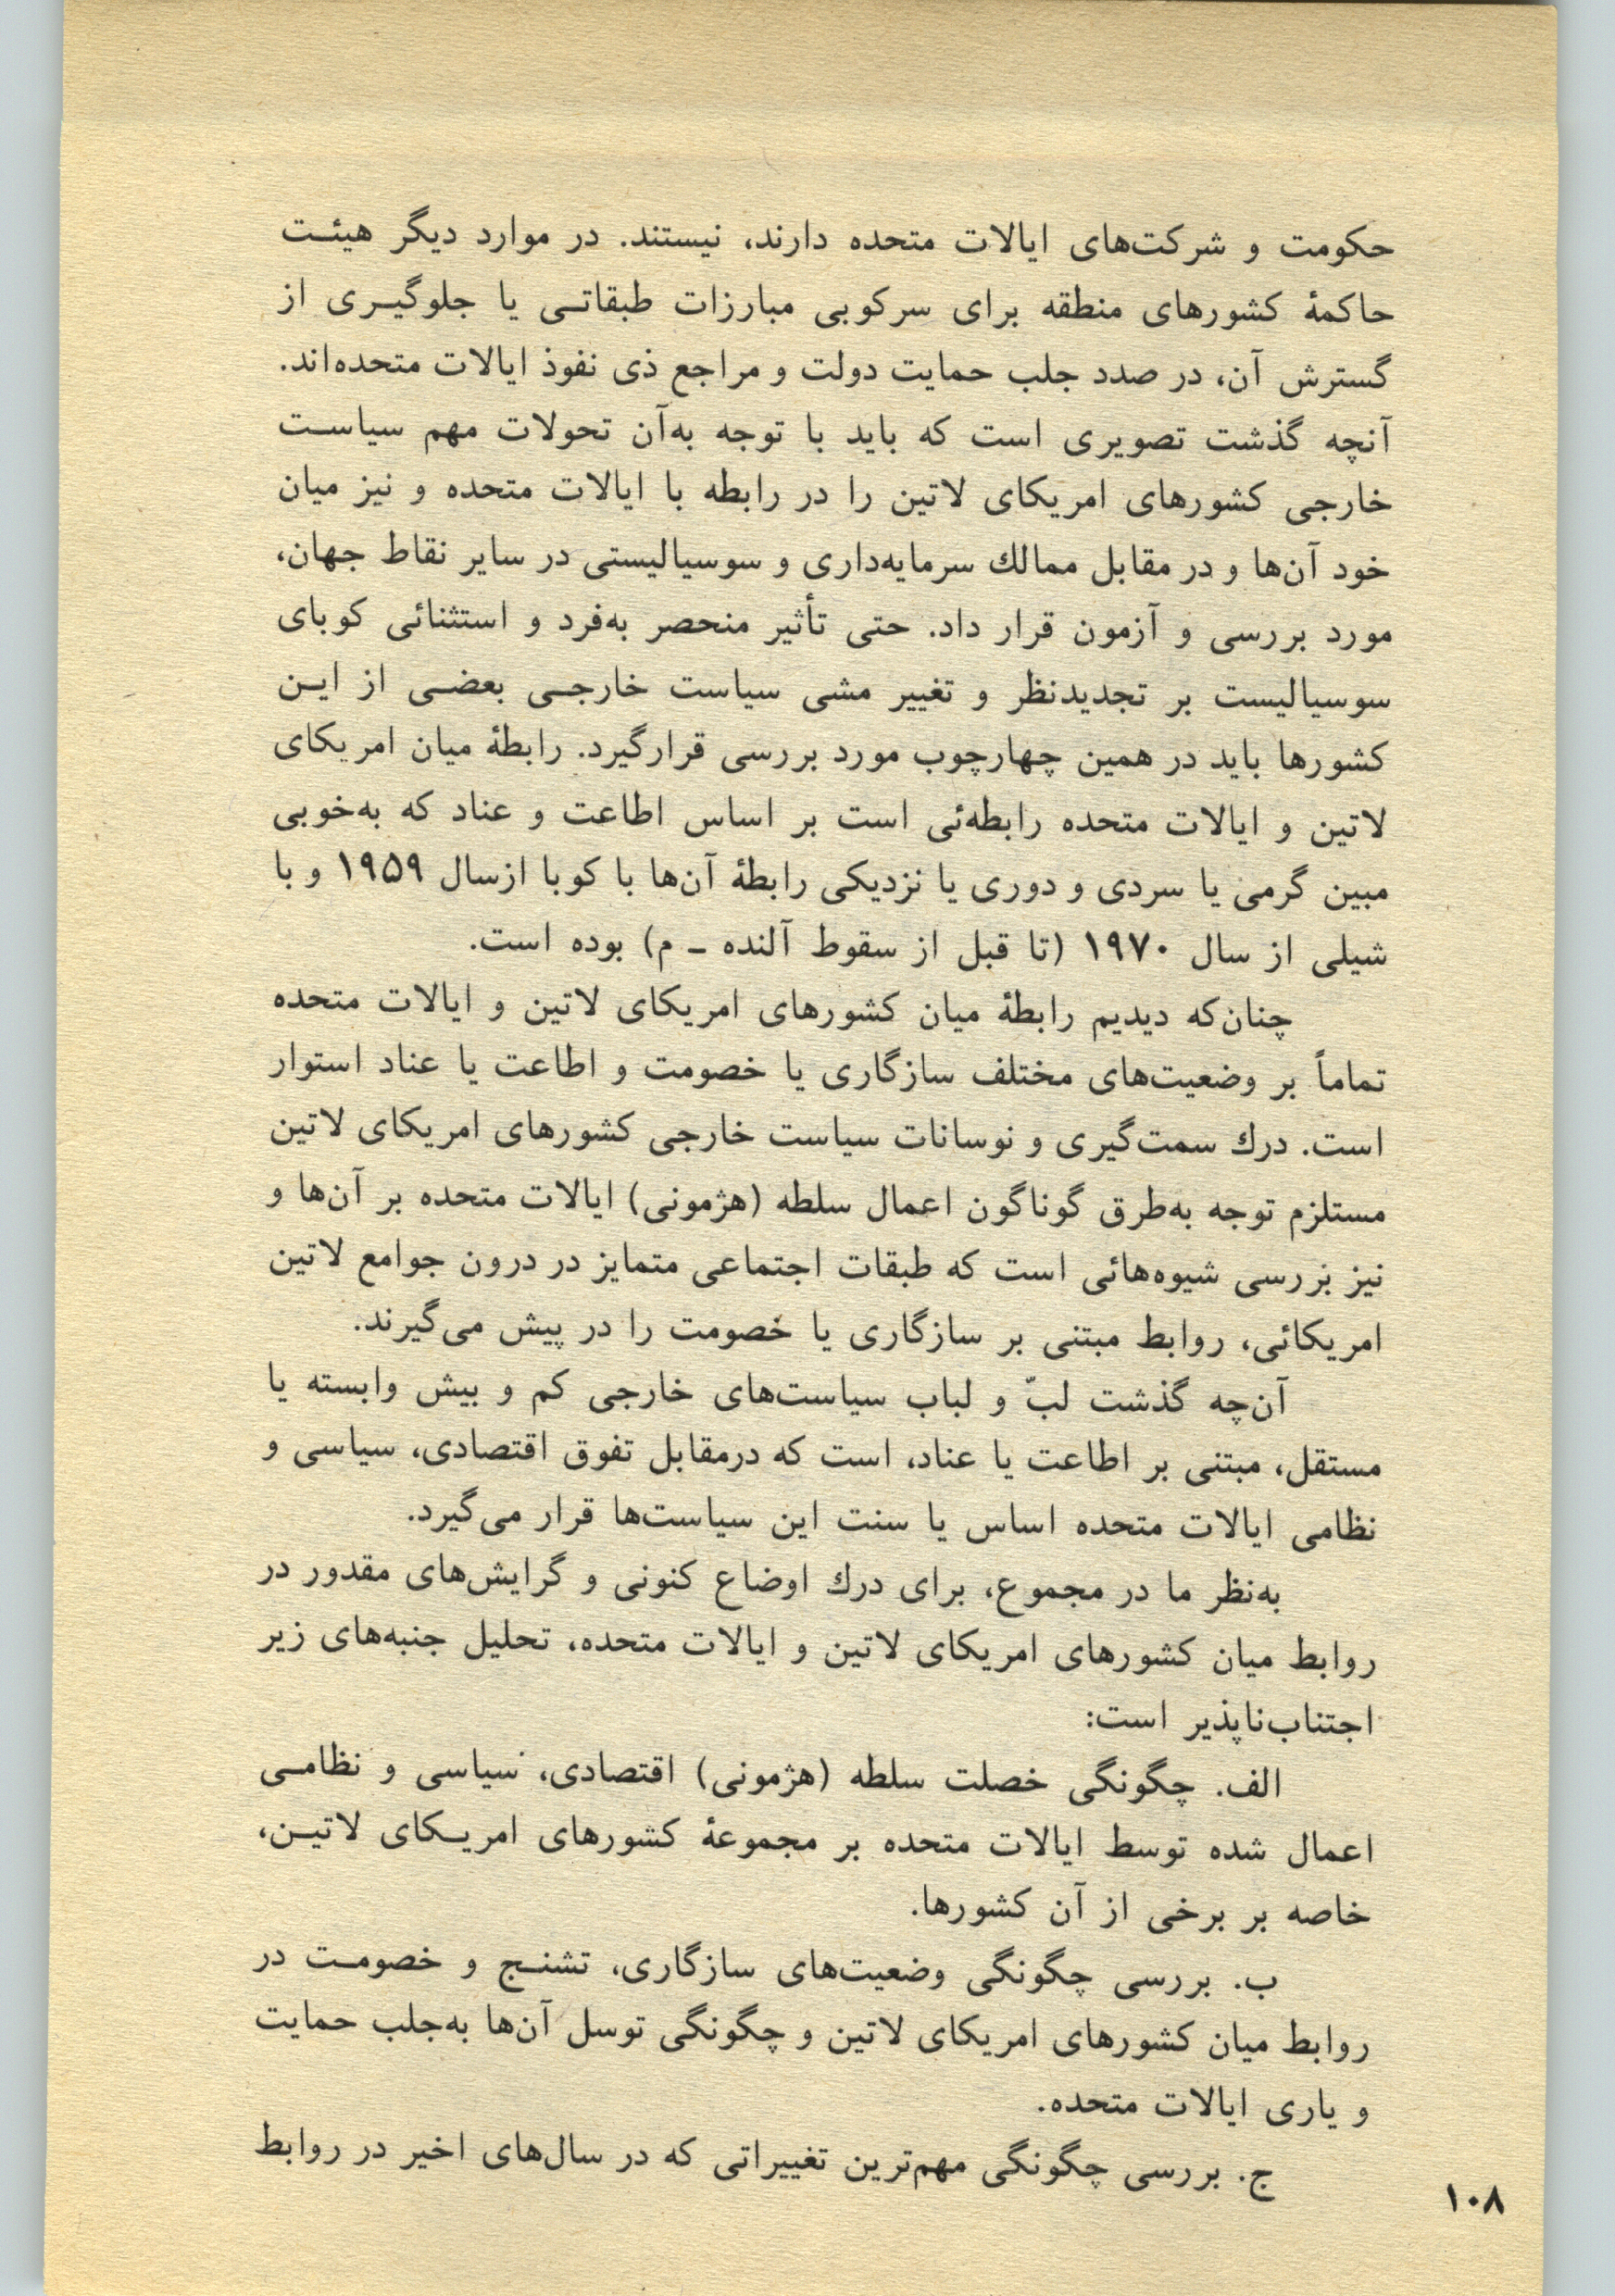 حکومت و شرکت‌های ایالات متحده دارند، نیستند. در موارد دیگر هیئت
حاکمهٔ کشورهای منطقه برای سرکوبی مبارزات طبقاتی یا جلوگیری از
گسترش آن، در صدد جلب حمایت دولت و مراجع ذی نفوذ ایالات متحده‌اند.
آنچه گذشت تصویری است که باید با توجه به‌آن تحولات مهم سیاست
خارجی کشورهای امریکای لاتین را در رابطه با ایالات متحده و نیز میان
خود آن‌ها و در مقابل ممالك سرمایه‌داری و سوسیالیستی در سایر نقاط جهان،
مورد بررسی و آزمون قرار داد. حتی تأثیر منحصر به‌فرد و استثنائی کوبای
سوسیالیست بر تجدیدنظر و تغییر مشی سیاست خارجی بعضی از این
کشورها باید در همین چهارچوب مورد بررسی قرارگیرد. رابطهٔ میان امریکای
لاتین و ایالات متحده رابطه‌ئی است بر اساس اطاعت و عناد که به‌خوبی
مبین گرمی یا سردی و دوری یا نزدیکی رابطهٔ آن‌ها با کوبا ازسال ۱۹۵۹ و با
شیلی از سال ۱۹۷۰ (تا قبل از سقوط آلنده ـ م) بوده است.
چنان‌که دیدیم رابطهٔ میان کشورهای امریکای لاتین و ایالات متحده
تماماً بر وضعیت‌های مختلف سازگاری یا خصومت و اطاعت یا عناد استوار
است. درك سمت‌گیری و نوسانات سیاست خارجی کشورهای امریکای لاتین
مستلزم توجه به‌طرق گوناگون اعمال سلطه (هژمونی) ایالات متحده بر آن‌ها و
نیز بررسی شیوه‌هائی است که طبقات اجتماعی متمایز در درون جوامع لاتین
امریکائی، روابط مبتنی بر سازگاری یا خصومت را در پیش می‌گیرند.
آن‌چه گذشت لبّ و لباب سیاست‌های خارجی کم و بیش وابسته یا
مستقل، مبتنی بر اطاعت یا عناد، است که درمقابل تفوق اقتصادی، سیاسی و
نظامی ایالات متحده اساس یا سنت این سیاست‌ها قرار می‌گیرد.
به‌نظر ما در مجموع، برای درك اوضاع کنونی و گرایش‌های مقدور در
روابط میان کشورهای امریکای لاتین و ایالات متحده، تحلیل جنبه‌های زیر
اجتناب‌ناپذیر است:
الف. چگونگی خصلت سلطه (هژمونی) اقتصادی، سیاسی و نظامی
اعمال شده توسط ایالات متحده بر مجموعهٔ کشورهای امریکای لاتین،
خاصه بر برخی از آن کشورها.
ب. بررسی چگونگی وضعیت‌های سازگاری، تشنج و خصومت در
روابط میان کشورهای امریکای لاتین و چگونگی توسل آن‌ها به‌جلب حمایت
و یاری ایالات متحده.
ج. بررسی چگونگی مهم‌ترین تغییراتی که در سال‌های اخیر در روابط
۱۰۸